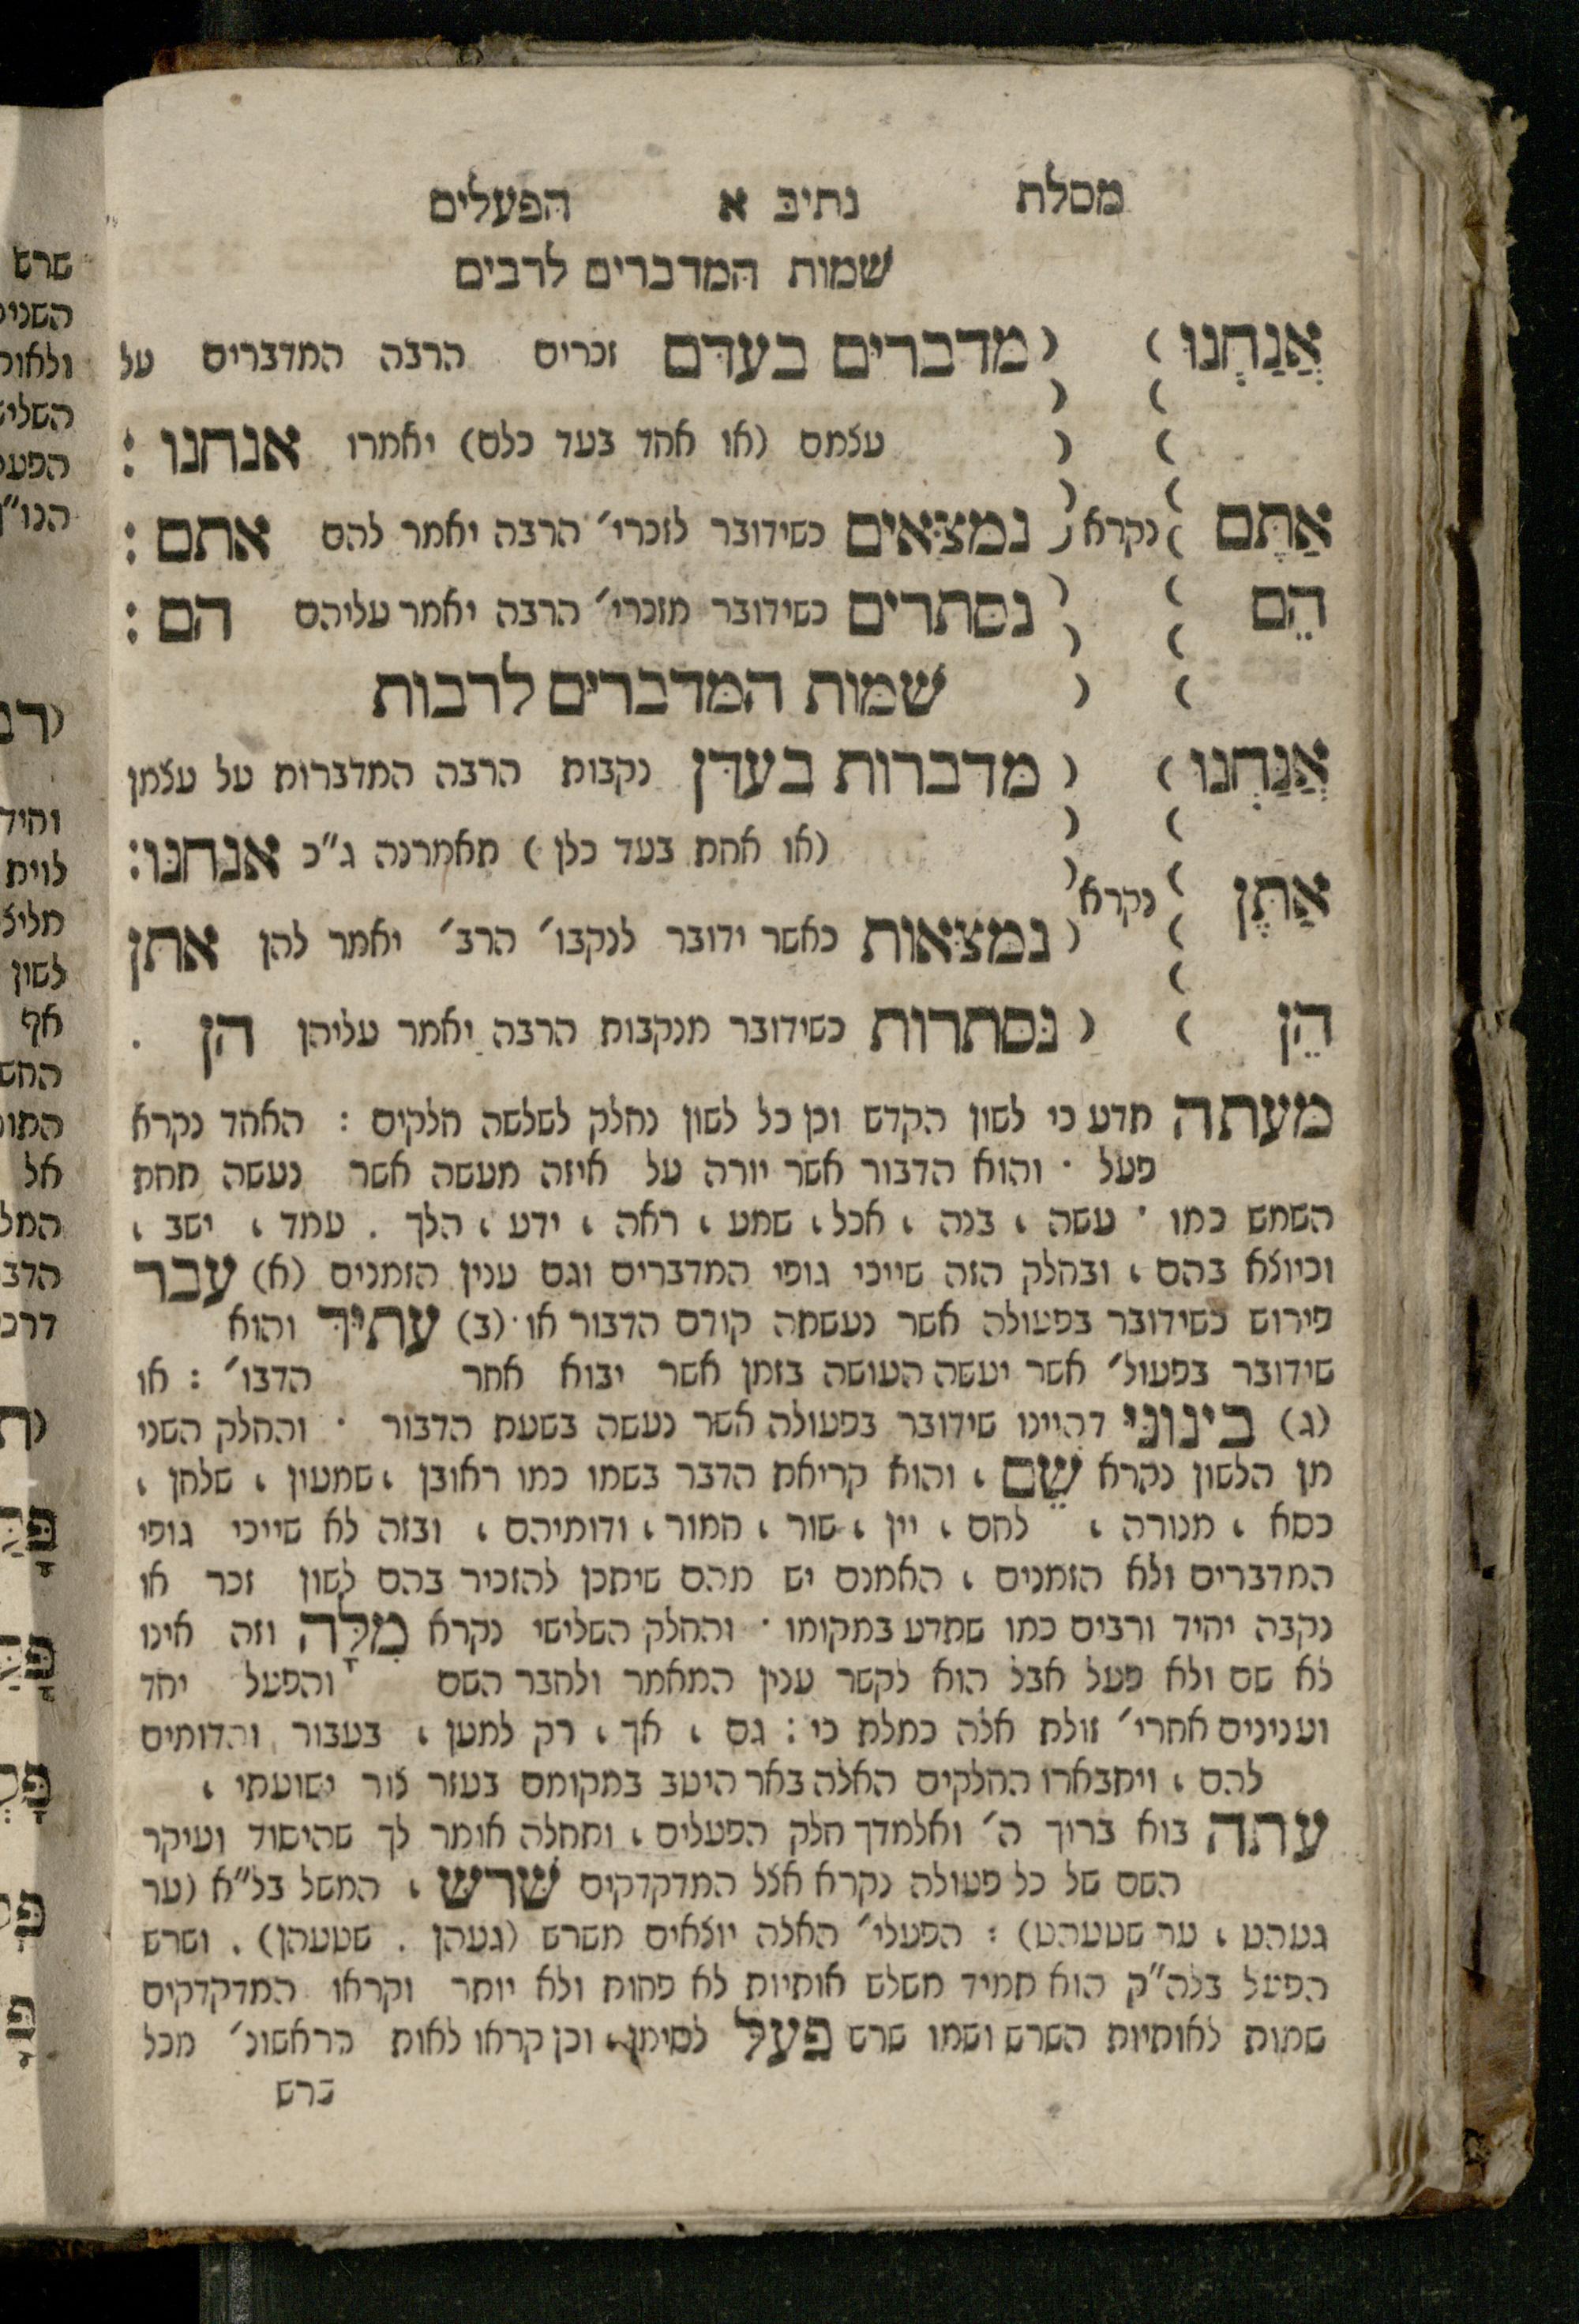 מסלת נתיב א הפעלים
שמות המדברים לרבים
אֲנַחְנוּ ) ( מדברים בעדם זכרים הרבה המדברים על
עצמם (או אחד בעד כלם) יאמרו אנחנו :
אַתֶּם ) נקרא ( נמצאים כשידובר לזכרי׳ הרבה יאמר להם אתם :
הֵם ) ( נסתרים כשידובר מזכרי׳ הרבה יאמר עליהם הם :
שמות המדברים לרבות
אֲנַחְנוּ ) ( מדברות בעדן נקבות הרבה המדברות על עצמן
(או אחת בעד כלן) תאמרנה ג״כ אנחנו:
אַתֶּן ) נקרא
( נמצאות כאשר ידובר לנקבו׳ הרב׳ יאמר להן אתן
הֵן ) ( נסתרות כשידובר מנקבות הרבה יאמר עליהן הן .
מעתה תדע כי לשון הקדש וכן כל לשון נחלק לשלשה חלקים : האחד נקרא
פעל . והוא הדבור אשר יורה על איזה מעשה אשר נעשה תחת
השמש כמו . עשה , בנה , אכל , שמע , ראה , ידע , הלך . עמד , ישב ,
וכיוצא בהם , ובחלק הזה שייכי גופי המדברים וגם ענין הזמנים (א) עבר
פירוש כשידובר בפעולה אשר נעשתה קודם הדבור או . (ב) עתיד והוא
שידובר בפעול׳ אשר יעשה העושה בזמן אשר יבוא אחר הדבו׳ : או
(ג) בינוני דהיינו שידובר בפעולה אשר נעשה בשעת הדבור . והחלק השני
מן הלשון נקרא שֵׁם , והוא קריאת הדבר בשמו כמו ראובן , שמעון , שלחן ,
כסא , מנורה , לחם , יין , שור , חמור , ודומיהם , ובזה לא שייכי גופי
המדברים ולא הזמנים , האמנם יש מהם שיתכן להזכיר בהם לשון זכר או
נקבה יחיד ורבים כמו שתדע במקומו . והחלק השלישי נקרא מִלָּה וזה אינו
לא שם ולא פעל אבל הוא לקשר ענין המאמר ולחבר השם והפעל יחד
וענינים אחרי׳ זולת אלה כמלת כי : גם , אך , רק למען , בעבור והדומים
להם , ויתבארו החלקים האלה באר היטב במקומם בעזר צור ישועתי ,
עתה בוא ברוך ה׳ ואלמדך חלק הפעלים , ותחלה אומר לך שהיסוד ועיקר
השם של כל פעולה נקרא אצל המדקדקים שרש , המשל בל״א (ער
געהט , ער שטעהט) : הפעלי׳ האלה יוצאים משרש (געהן . שטעהן) . ושרש
הפעל בלה״ק הוא תמיד משלש אותיות לא פחות ולא יותר וקראו המדקדקים
שמות לאותיות השרש ושמו שרש פעל לסימן , וכן קראו לאות הראשונ׳ מכל
שרש
שרש
ולאות
לשון
אף
אל